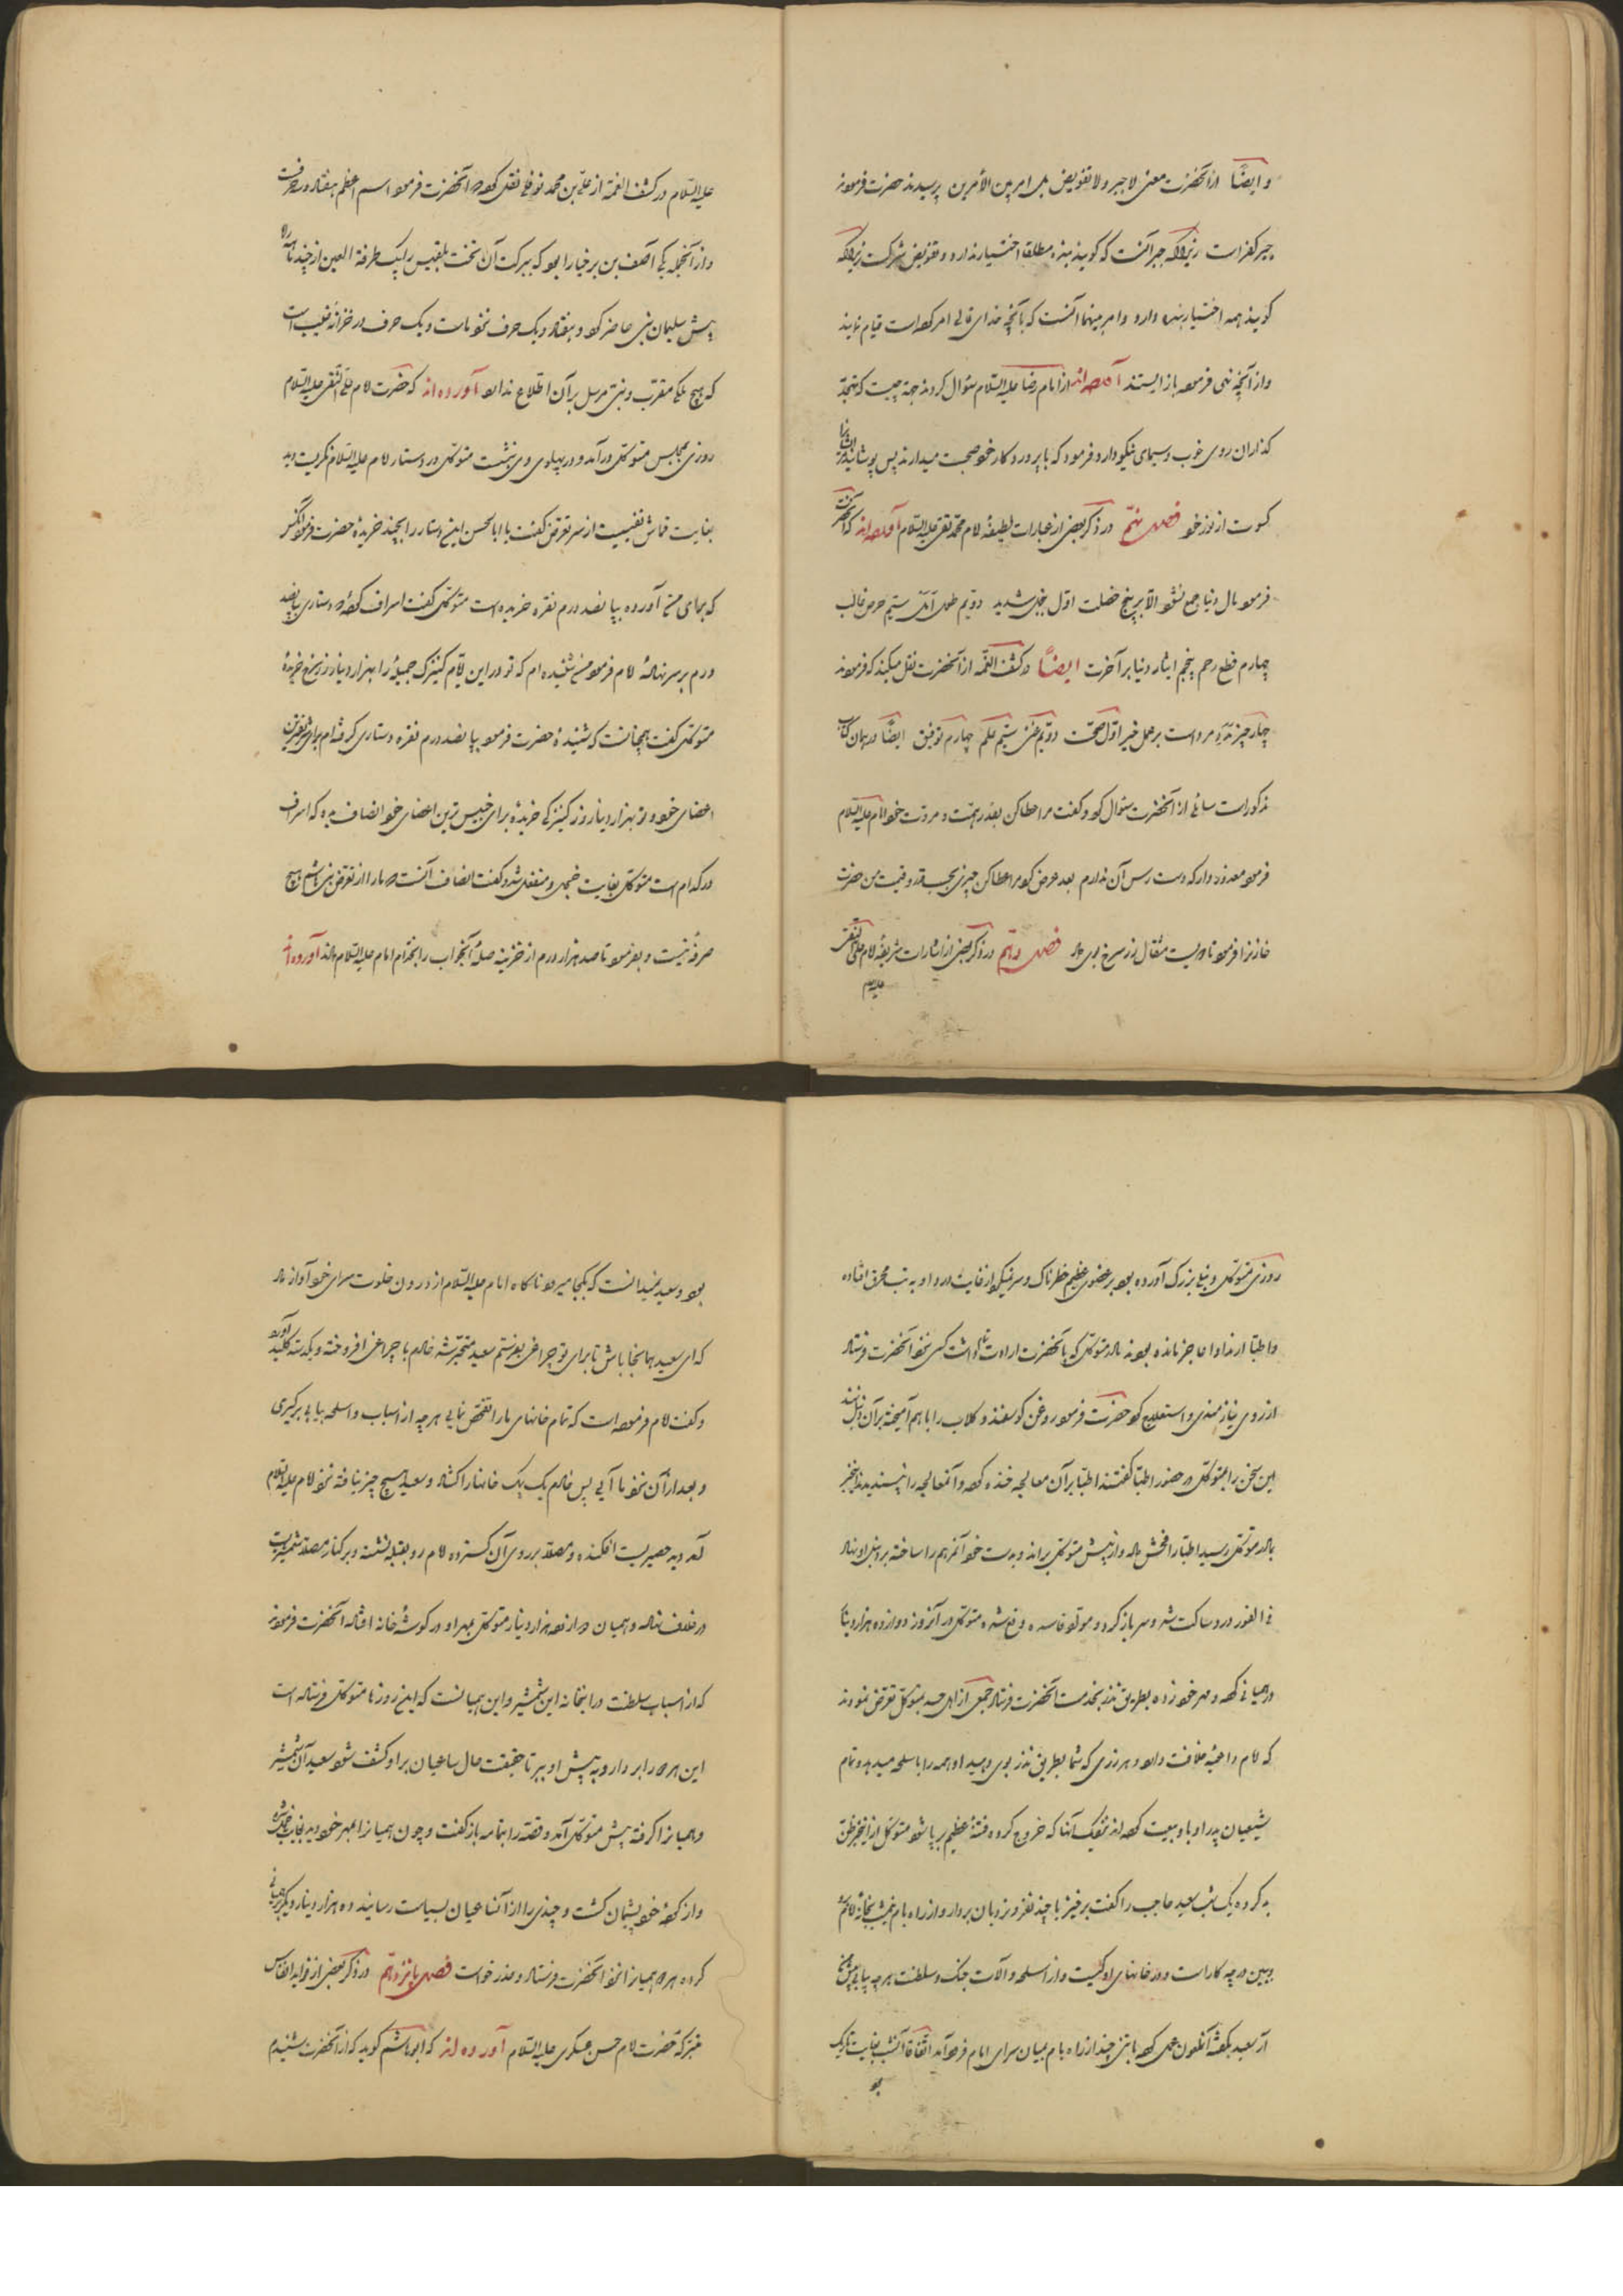 و ایضاً از آنحضرت معنی لا جبر ولا تفویض بل امر بین الأمرین پرسیدند حضرت فرمودند
جبر کفر است زیراکه جبر آنست که گویند بنده مطلقا اختیار ندارد و تفویض شرکست زیراکه
گویند همه اختیار بنده دارد و امر بینهما آنست که بآنچه خدای تعالی امر کرده است قیام نمایند
و از آنچه نهی فرموده باز ایستند آورده‌اند از امام رضا علیه السّلام سئوال کردند جهة چیست که تهجّد
گذاران روی خوب و سیمای نیکو دارد فرمود که با پرورد کار خود صحبت میدارند پس پوشانید ایشانرا
کسوت از نور خود فصل نهم در ذکر بعضی از عبارات لطیفهٔ امام محمّد تقی علیه السّلام آورده‌اند که آنحضرت
فرمود مال دنیا جمع نشود الّا بر پنج خصلت اوّل بخل شدید دویّم طول امل سیّم حرص غالب
چهارم قطع رحم پنجم ایثار دنیا بر آخرت ایضاً در کشف الغمّه از آنحضرت نقل میکند که فرمودند
چهار چیز مرد است بر عمل خیر اوّل صحّت دویّم غنی سیّم علم چهارم توفیق ایضاً در همان کتاب
مذکور است سائلی از آنحضرت سئوال کرد و گفت مرا عطا کن بقدر همّت و مروّت خود امام علیه السّلام
فرمود معذور دار که دست رس آن ندارم بعد عرض کرد مرا عطا کن چیزی بحسب قدر و قیمت من حضرت
خازنرا فرمود تا دویست مثقال زر سرخ بوی داد فصل دهم در ذکر بعضی از اشارات شریفهٔ امام علی النّقی
علیه السلام
علیه السّلام در کشف الغمّة از علی بن محمد نوفلی نقل کرده که آنحضرت فرمود اسم اعظم هفتاد و سه حرفست
و از آنجمله یکی آصف بن برخیا را بود که ببرکت آن تخت بلقیس را بیک طرفة العین از چند ماهه راه
پیش سلیمان نبی حاضر کرد و هفتاد و یک حرف نزد ماست و یک حرف در خزانهٔ غیب است
که هیچ ملک مقرّب و نبی مرسل بر آن اطّلاع ندارد آورده‌اند که حضرت امام علی النّقی علیه السّلام
روزی بمجلس متوکل درآمد و در پهلوی وی بنشست متوکل در دستار امام علیه السّلام نگریست دید
بغایت قماش نفیسیست از سر تعرّض گفت یا ابا الحسن این دستار را بچند خریدهٔ حضرت فرمود آنکس
که برای من آورده بپانصد درم نقره خریده است متوکل گفت اسراف کردهٔ که دستاری بپانصد
درم بر سر نهادهٔ امام فرمود من شنیده‌ام که تو در این ایّام کنیزک جمیلهٔ را بهزار دینار زر سرخ خریدهٔ
متوکل گفت همچنانست که شنیدهٔ حضرت فرمود بپانصد درم نقره دستاری گرفته‌ام برای شریفترین
اعضای خود و تو بهزار دینار زر کنیزکی خریدهٔ برای خسیس ترین اعضای خود انصاف بده که اسراف
در کدام است متوکل بغایت خجل و منفعل شد و گفت انصاف آنست که ما را از تعرّض بنی هاشم هیچ
صرفه نیست و بفرمود تا صد هزار درم از خزینه صلهٔ آنجواب را بخدّام امام علیه السّلام دادند آورده‌اند
روزی متوکل دنبلی بزرگ آورده بود بر عضوی عظیم خطرناک و سر نیکرد از غایت درد او به تب محرق افتاده
و اطبّا از مداوا عاجز مانده بودند مادر متوکل که بآنحضرت ارادت تمام داشت کسی نزد آنحضرت فرستاد
از روی نیازمندی و استعلاج کرد حضرت فرمود روغن گوسفند و گلاب را باهم آمیخته بر آن دنبل نهند
این سخن را بمتوکل در حضور اطبّا گفتند اطبّا بر آن معالجه خنده کرده و آنمعالجه را نپسندیدند اینخبر
بمادر متوکل رسید اطبّا را فحش داد و از پیش متوکل براند و بدست خود آنمرهم را ساخته بر دنبل او نهاد
فی الفور درد ساکت شد و سر باز کرد و موادّ فاسده دفع شده متوکل در آنروز دوازده هزار دینار
در همیانی کرده و مهر خود زده بطریق نذر بخدمت آنحضرت فرستاد جمعی از اهل حسد بمتوکل تعرّض نمودند
که امام داعیهٔ خلافت دارد و هر زری که شما بطریق نذر بوی دهید او همه را باسلحه میدهد و تمام
شیعیان پدر او با او بیعت کرده‌اند نزدیک آنکه خروج کرده فتنهٔ عظیم بر پا شود متوکل از اینخبر ظنّ
بد کرده یک شب سعید حاجب را گفت برخیز با چند نفر و نردبان بردار و از راه بام نیمشب بخانهٔ امام رو
ببین در چه کار است و در خانهای او کیست و از اسلحه و آلات جنک و سلطنت هرچه بیابی پیش من
آر سعید بگفته آنملعون عمل کرده با تنی چند از راه بام بمیان سرای امام فرود آمد اتّفاقاً آنشب بغایت تاریک
بود
بود و سعید نمیدانست که بکجا میرود ناکاه امام علیه السّلام از درون خلوت سرای خود آواز داد
که ای سعید همانجا باش تا برای تو چراغی بفرستم سعید متحیّر شد خادم با چراغی افروخته و یکدسته کلید آورد
و گفت امام فرموده است که تمام خانهای ما را تفحّص نمایی هر چه از اسباب و اسلحه بیابی برگیری
و بعد از آن نزد ما آیی پس خادم یک بیک خانها را گشاد و سعید هیچ چیز نیافته نزد امام علیه السّلام
آمد دید حصیریست افکنده و مصلّا بر روی آن گسترده امام رو بقبله نشسته و بر کنار مصلّا شمشیریست
در غلاف نهاده و همیان دوازده هزار دینار متوکل بمهر او در گوشهٔ خانه افتاده آنحضرت فرمودند
که از اسباب سلطنت در اینخانه این شمشیر و این همیانست که این روزها متوکل فرستاده است
این هر دو را بردار و به پیش او ببر تا حقیقت حال ساعیان بر او کشف شود سعید آن شمشیر
و همیانرا گرفته پیش متوکل آمد و قصّه را بتمامه باز گفت و چون همیانرا بمهر خود دید بغایت خجل شده
و از کردهٔ خود پشیمان گشت و چندی را از آنساعیان بسیاست رسانید ده هزار دینار دیگر در همیانی
کرده هر دو همیانرا نزد آنحضرت فرستاد و عذر خواست فصل یازدهم در ذکر بعضی از فواید انفاس
متبرّکهٔ حضرت امام حسن عسکری علیه السّلام آورده‌اند که ابوهاشم گوید که از آنحضرت شنیدم